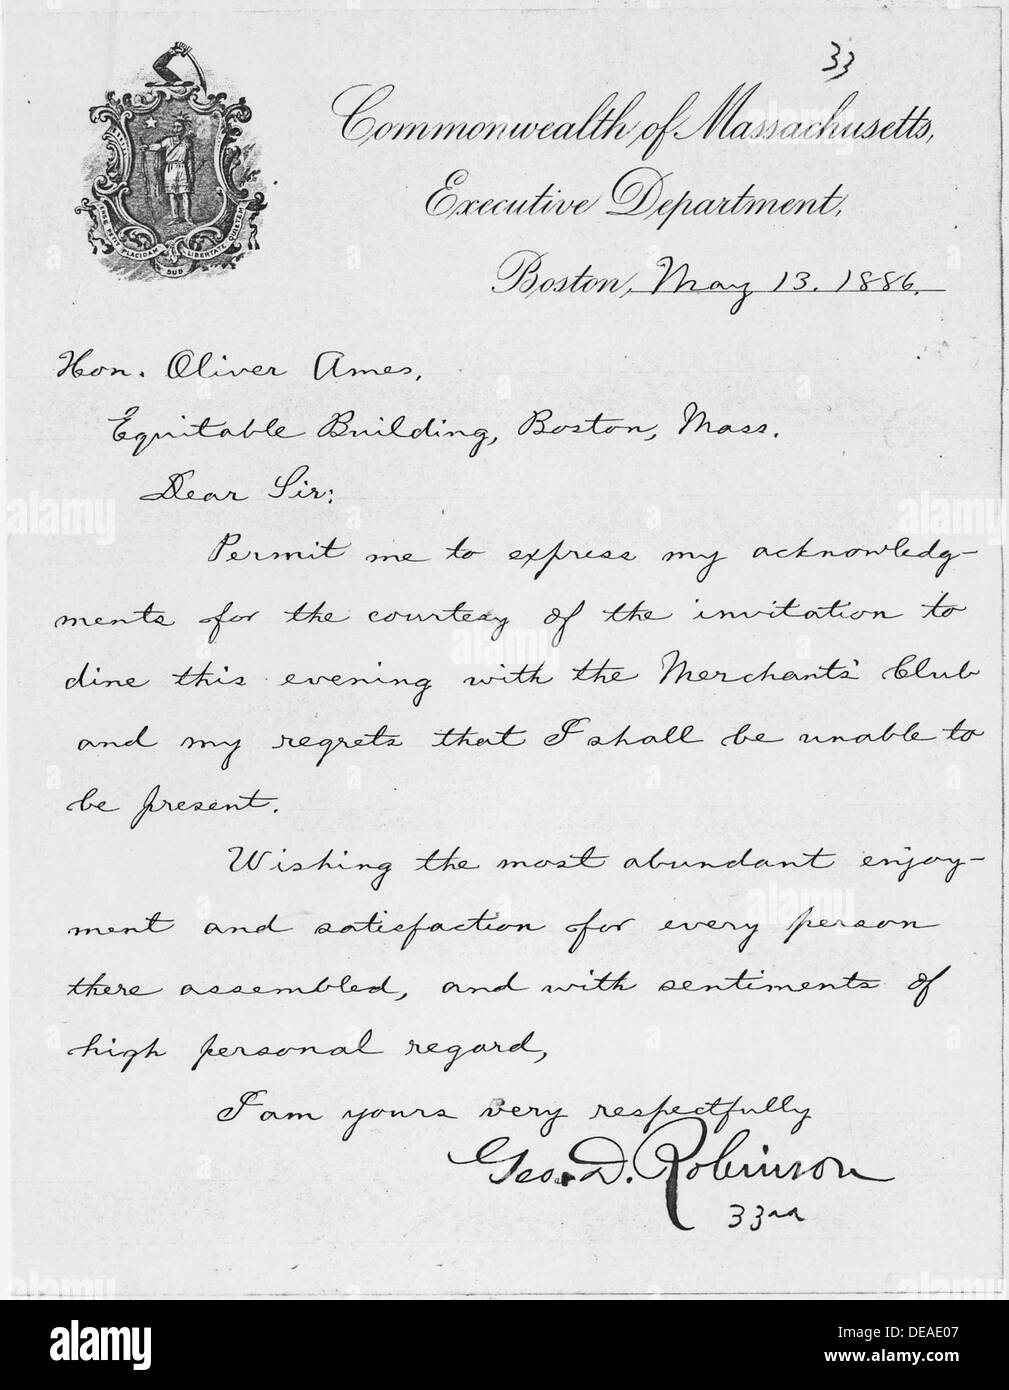 33
Commonwealth of Massachusetts,
Executive Department,
Boston, May 13. 1886.
ENSE PETIT PLACIDAM SUB LIBERTATE QUIETEM
Hon. Oliver Ames,
Equitable Building, Boston, Mass.
Dear Sir:
Permit me to express my acknowledg-
ments for the courtesy of the invitation to
dine this evening with the Merchants' Club
and my regrets that I shall be unable to
be present.
Wishing the most abundant enjoy-
ment and satisfaction for every person
there assembled, and with sentiments of
high personal regard,
I am yours very respectfully
Geo. D. Robinson
33rd
alamy
Image ID: DEAE07
www.alamy.com